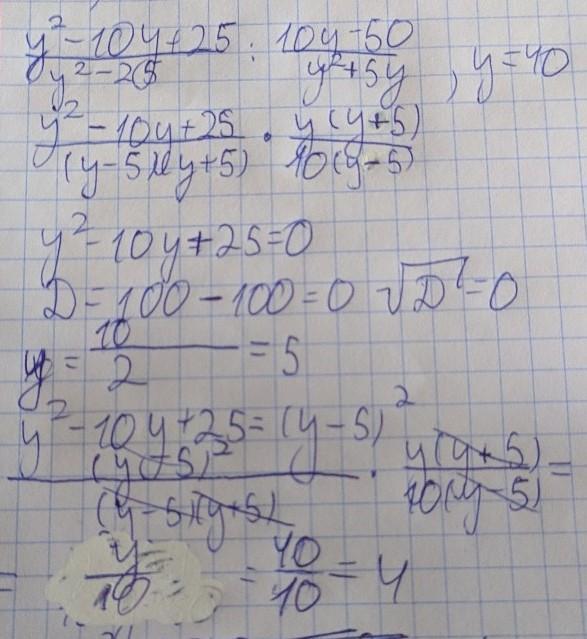 y² - 10y + 25 / y² - 25 : 10y - 50 / y² + 5y , y = 40
y² - 10y + 25 / (y - 5)(y + 5) · y(y + 5) / 10(y - 5)
y² - 10y + 25 = 0
D = 100 - 100 = 0 √D = 0
y = 10 / 2 = 5
y² - 10y + 25 = (y - 5)²
(y - 5)² / (y - 5)(y + 5) · y(y + 5) / 10(y - 5) =
= y / 10 = 40 / 10 = 4